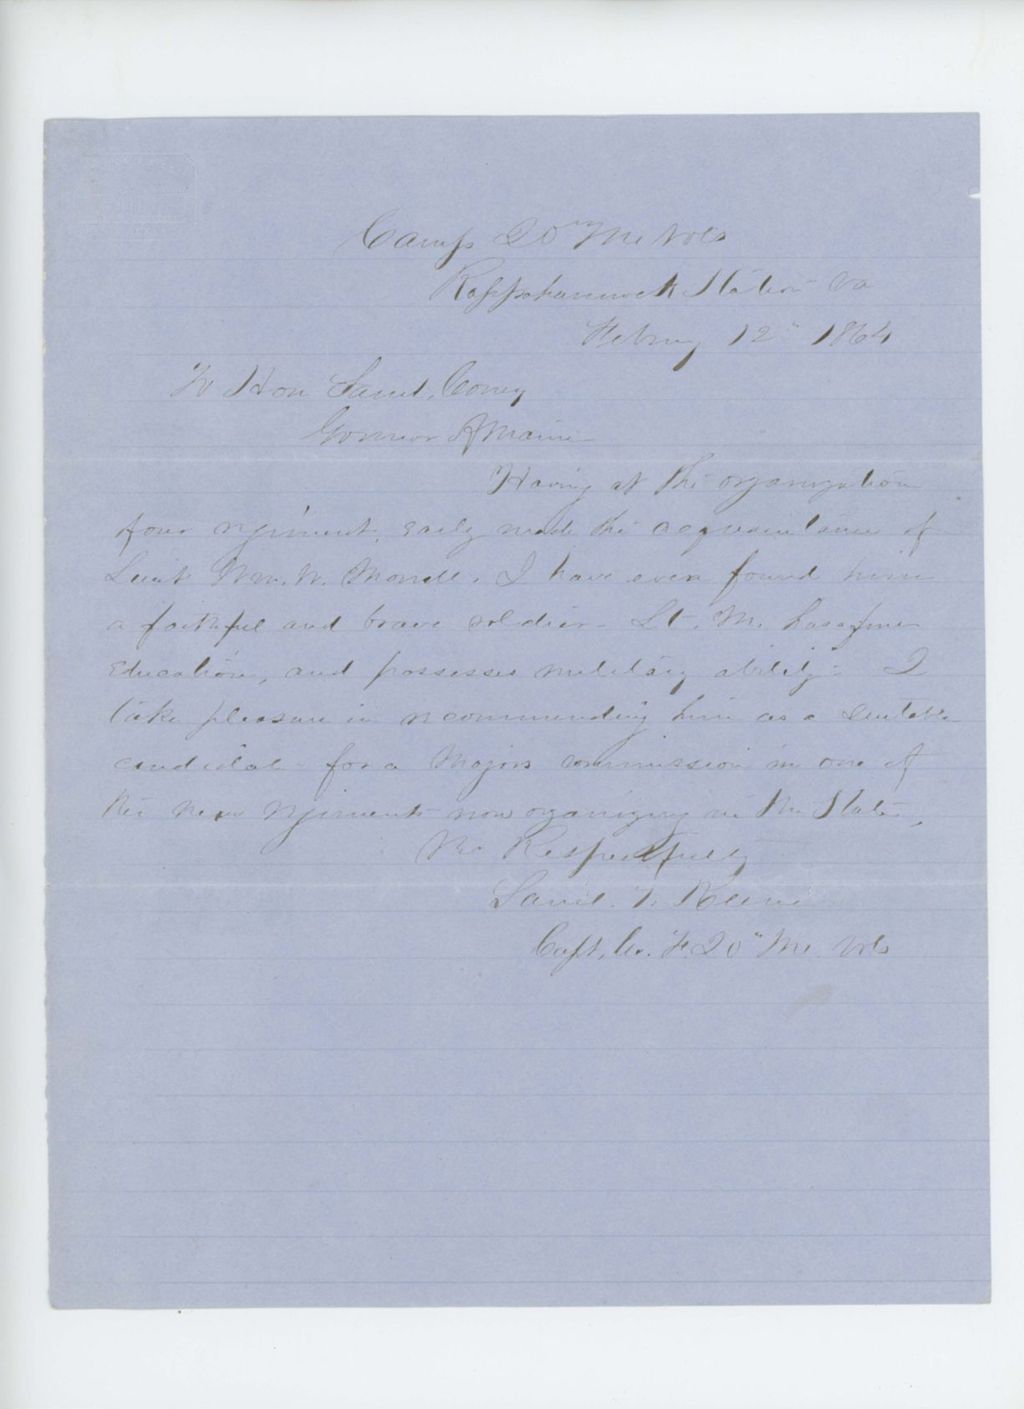 Camp 20th Me Vols
Rappahannock Station Va
Febury 12" 1864
To Hon Saml. Cony
Governor of Maine
Having at the organization
of our regiment, early made the acquaintance of
Lieut Wm. W. Morrell. I have ever found him
a faithful and brave soldier. Lt. M. has a fine
education, and possesses military ability. I
take pleasure in recommending him as a suitable
candidate for a Majors commission in one of
the new regiments now organizing in the State.
Respectfully
Saml. T. Keene
Capt, Co. F. 20" Me. Vols